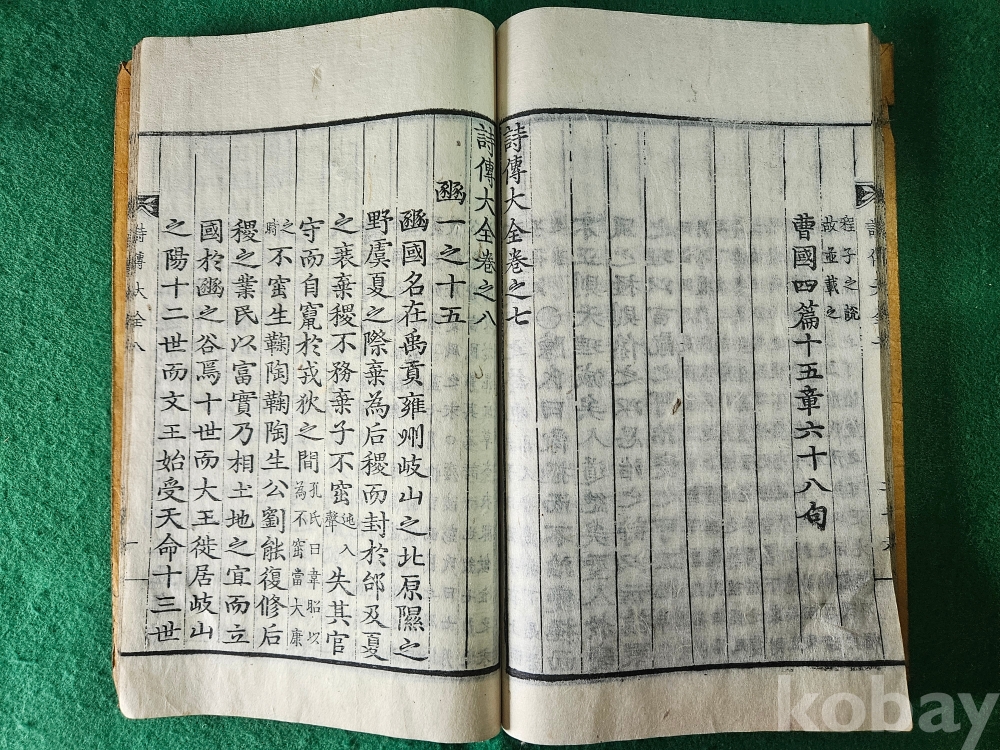 程子之說
故並載之
曹國四篇十五章六十八句
詩傳大全卷之七
詩傳大全卷之八
豳一之十五
豳國名在禹貢雍州岐山之北原隰之
野虞夏之際棄為后稷而封於邰及夏
之衰棄稷不務棄子不窋
入
聲
失其官
守而自竄於戎狄之間
孔氏曰韋昭以
為不窋當大康
之
時
不窋生鞠陶鞠陶生公劉能復修后
稷之業民以富實乃相土地之宜而立
國於豳之谷焉十世而大王徙居岐山
之陽十二世而文王始受天命十三世
詩傳大全八
一
kobay